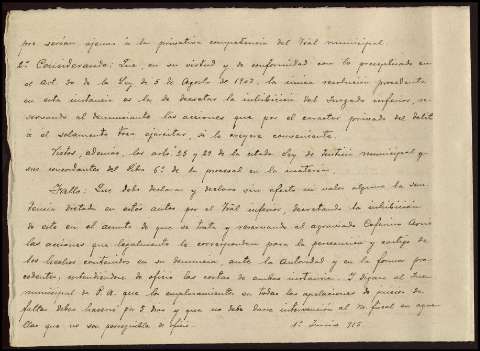 por serían ajenas á la privativa competencia del Tral municipal.
2º Considerando: Que, en su virtud y de conformidad con lo preceptuado en
el art. de la Ley de 5 de Agosto de 1907, la única resolución procedente
en esta instancia es la de decretar la inhibición del Juzgado inferior, re
servando al denunciante las acciones que por el caracter privado del delito
á él solamente toca ejercitar, si lo creyere conveniente.
Vistos, además, los artºs 25 y 29 de la citada Ley de Justicia municipal y
sus concordantes del Libro 6º de la procesal en la materia.
Fallo: Que debo declarar y declaro sin efecto ni valor alguno la sen
tencia dictada en estos autos por el Tral inferior, decretando la inhibición
de este en el asunto de que se trata y reservando al agraviado Ceferino
las acciones que legalmente le correspondan para la persecución y castigo de
los hechos contenidos en su denuncia ante la Autoridad y en la forma pro
cedentes, entendiendose de oficio las costas de ambas instancias. Y digase al Juez
municipal de que los emplazamientos en todas las apelaciones de juicios de
faltas deben hacerse por 5 dias y que no debe darse intervención al M. fiscal en aque
llas que no son perseguible de oficio. 1º Junio 915